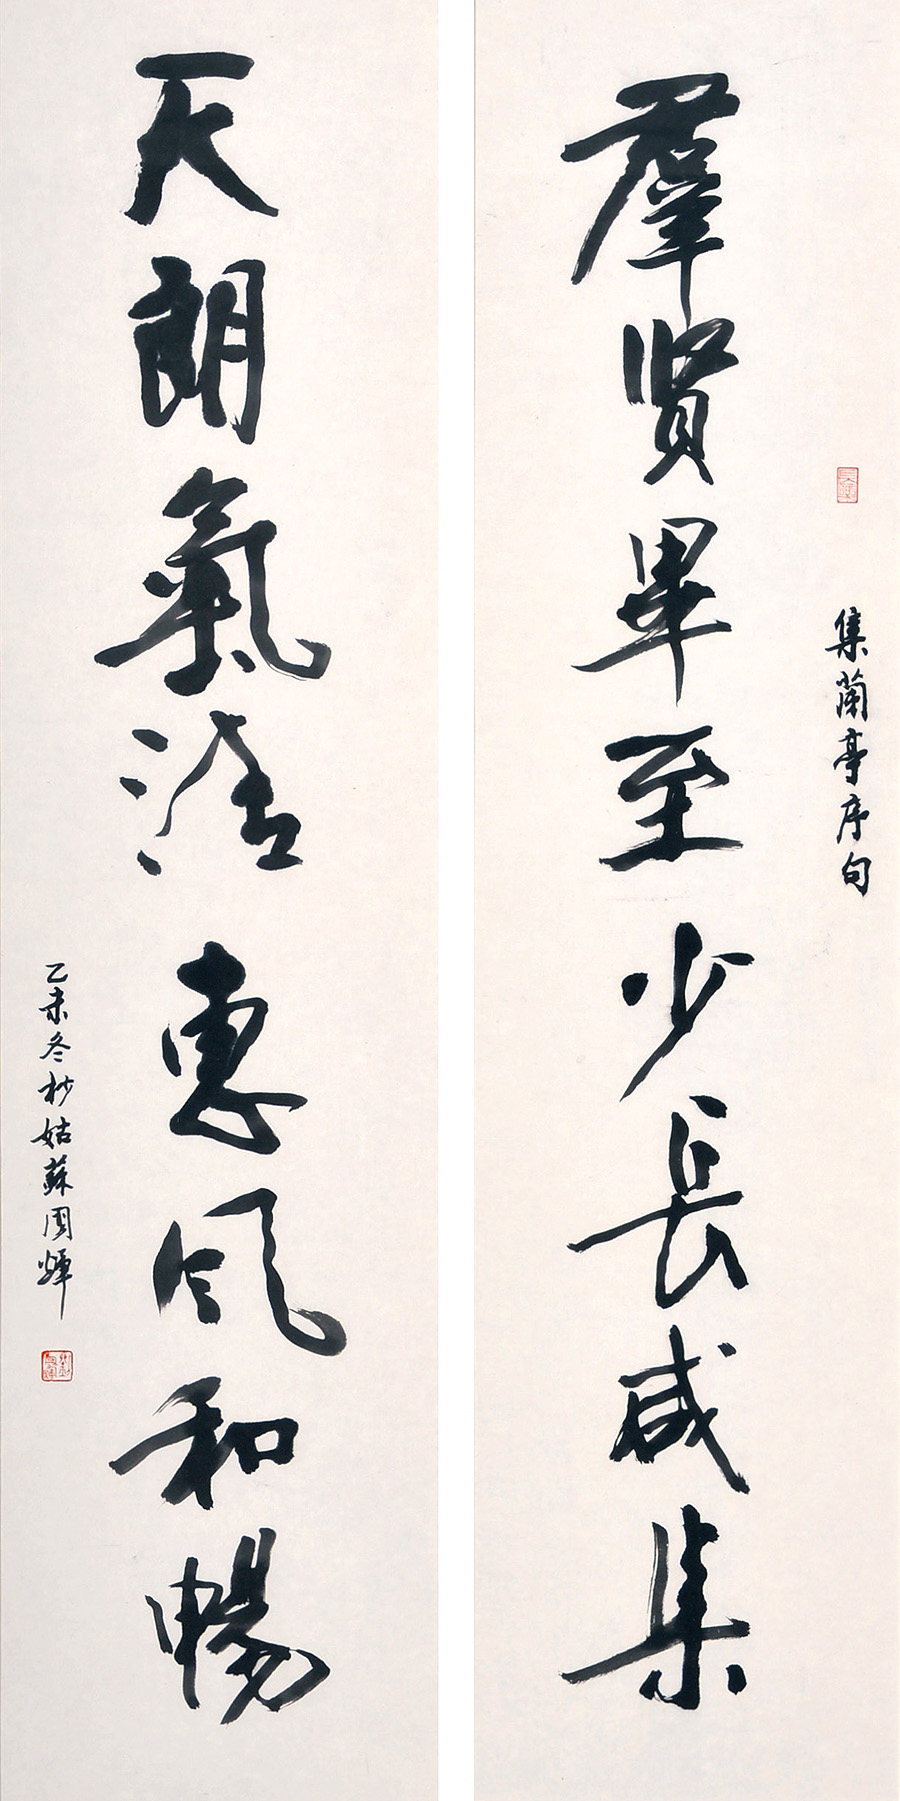 集蘭亭序句
羣賢畢至少長咸集
天朗氣清惠風和暢
乙未冬杪姑蘇國輝